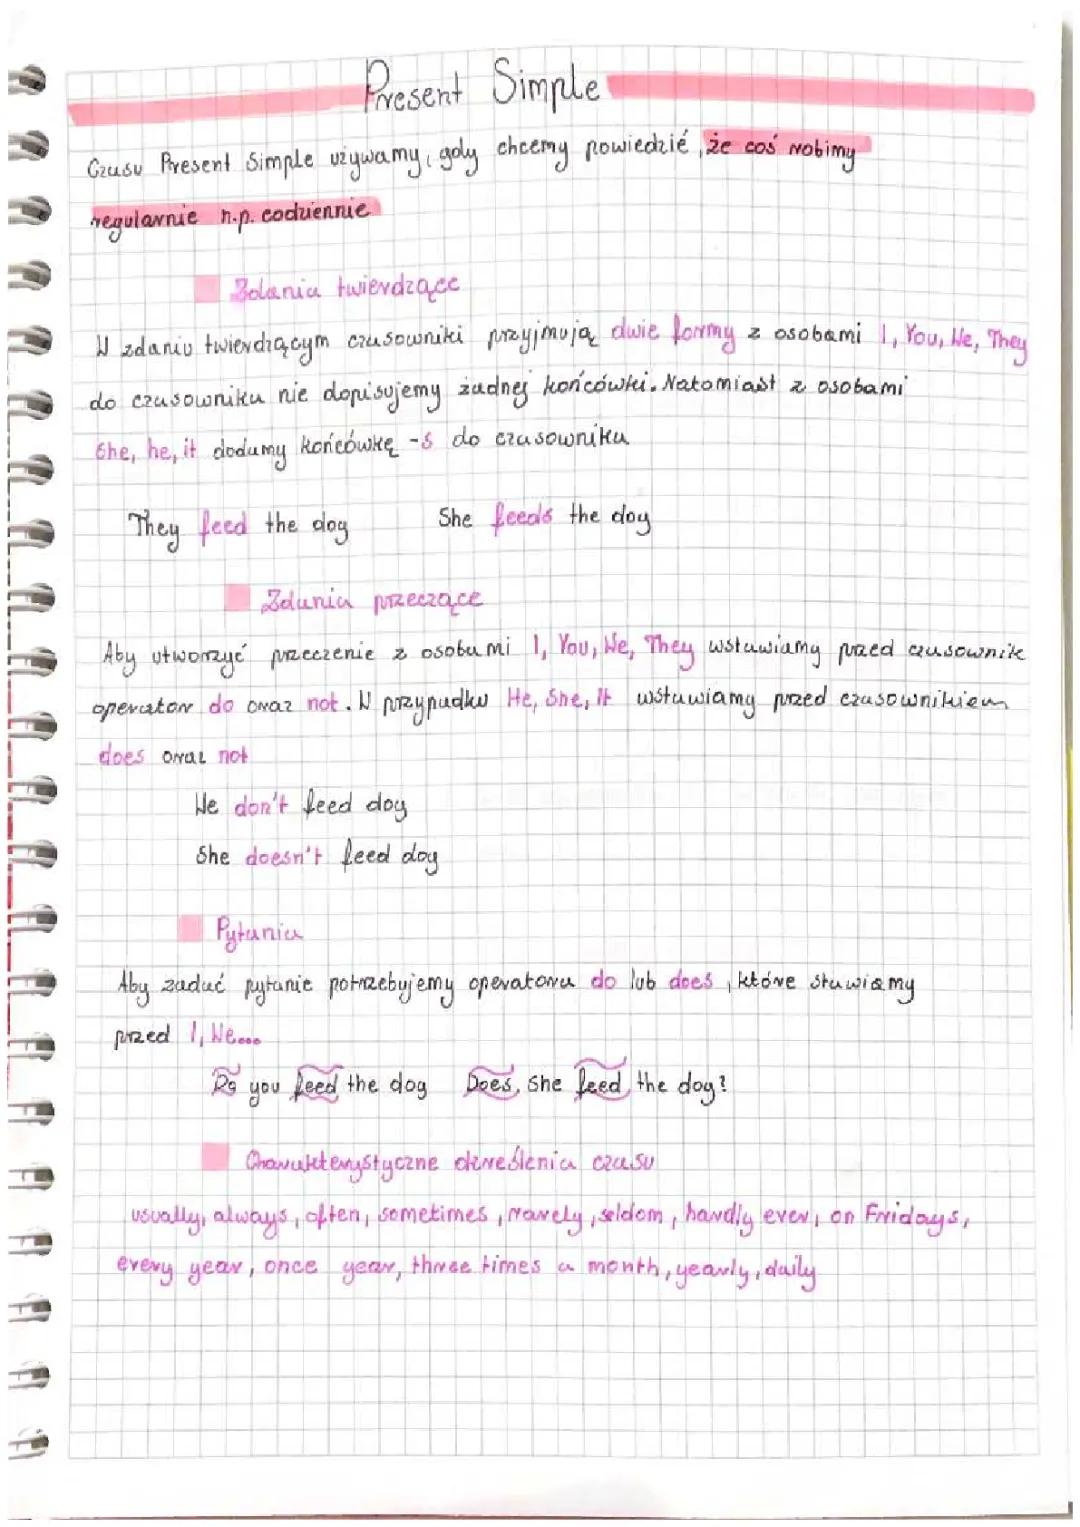 Present Simple
Czasu Present Simple używamy, gdy chcemy powiedzić, że coś robimy
regularnie n.p. codziennie
Zdania twierdzące
W zdaniu twierdzącym czasowniki przyjmują dwie formy z osobami I, You, We, They
do czasowniku nie dopisujemy żadnej końcówki. Natomiast z osobami
She, he, it dodamy końcówkę -s do czasowniku
They feed the dog She feeds the dog
Zdania przeczące
Aby utworzyć przeczenie z osobami I, You, We, They wstawiamy przed czasownik
operator do oraz not. W przypadku He, She, It wstawiamy przed czasownikiem
does oraz not
We don't feed dog
She doesn't feed dog
Pytania
Aby zadać pytanie potrzebujemy operatora do lub does, które stawiamy
przed I, We...
Do you feed the dog Does she feed the dog?
Charakterystyczne określenia czasu
usually, always, often, sometimes, rarely, seldom, hardly ever, on Fridays,
every year, once year, three times a month, yearly, daily